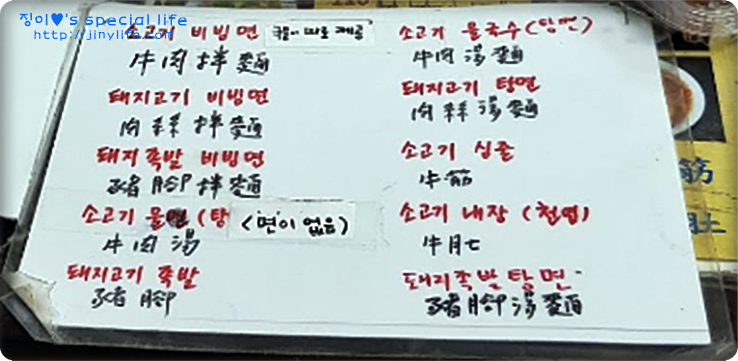 징이♥'s special life
http://jinylife.com
소고기 비빙면
국물이 따로 제공
牛肉拌麵
돼지고기 비빙면
肉絲拌麵
돼지족발 비빙면
豬腳拌麵
소고기 물면(탕
(면이 없음)
牛肉湯
돼지고기 족발
豬腳
소고기 물국수(탕면)
牛肉湯麵
돼지고기 탕면
肉絲湯麵
소고기 심줄
牛筋
소고기 내장(천엽)
牛肚
돼지족발탕면
豬腳湯麵
筋
肚